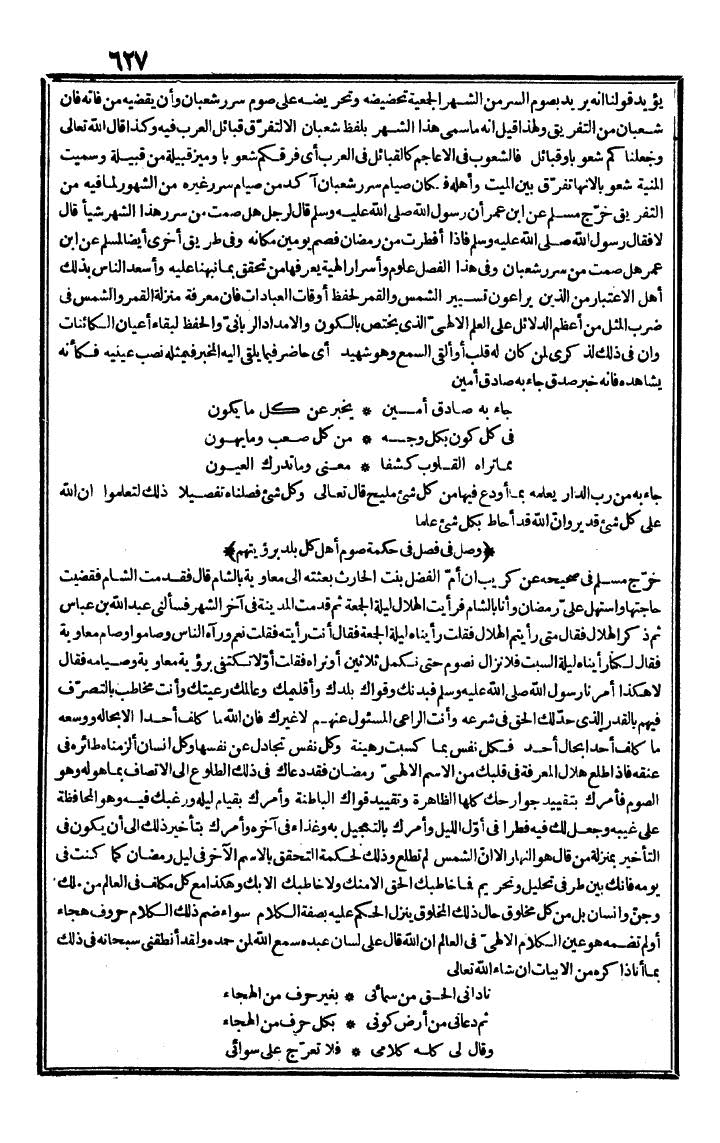 ٦٢٧
يؤيد قولنا انه يريد بصوم السر من الشهر الجمعية تحضيضه وتحريضه على صوم سرر شعبان وأن يقضيه من فاته فان
شعبان من التفريق ولهذا قيل انه ما سمى هذا الشهر بلفظ شعبان الا لتفرق قبائل العرب فيه وكذا قال الله تعالى
وجعلناكم شعوبا وقبائل فالشعوب فى الاعاجم كالقبائل فى العرب أى فرقكم شعوبا وميز قبيلة من قبيلة وسميت
المنية شعوبا لانها تفرق بين الميت وأهله فكان صيام سرر شعبان آكد من صيام سرر غيره من الشهور لما فيه من
التفريق خرّج مسلم عن ابن عمر أن رسول الله صلى الله عليه وسلم قال لرجل هل صمت من سرر هذا الشهر شيأ قال
لا فقال رسول الله صلى الله عليه وسلم فاذا أفطرت من رمضان فصم يومين مكانه وفى طريق أخرى أيضا لمسلم عن ابن
عمر هل صمت من سرر شعبان وفى هذا الفصل علوم وأسرار الهية يعرفها من تحقق بما نبهنا عليه وأسعد الناس بذلك
أهل الاعتبار من الذين يراعون تسيير الشمس والقمر لحفظ أوقات العبادات فان معرفة منزلة القمر والشمس فى
ضرب المثل من أعظم الدلائل على العلم الالهىّ الذى يختص بالكون والامداد الربانىّ والحفظ لبقاء أعيان الكائنات
وان فى ذلك لذكرى لمن كان له قلب أو ألقى السمع وهو شهيد أى حاضر فيما يلقى اليه المخبر فيمثله نصب عينيه فكأنه
يشاهده فانه خبر صدق جاء به صادق أمين
جاء به صادق أمـين * يخبر عن كل ما يكون
فى كل كون بكل وجه * من كل صعب وما يهون
بما تراه القلوب كشفا * معنى وما تدرك العيون
جاء به من رب الدار يعلمه بما أودع فيها من كل شئ مليح قال تعالى وكل شئ فصلناه تفصيلا ذلك لتعلموا ان الله
على كل شئ قدير وانّ الله قد أحاط بكل شئ علما
﴿وصل فى فصل فى حكمة صوم أهل كل بلد برؤيتهم﴾
خرّج مسلم فى صحيحه عن كريب ان أمّ الفضل بنت الحارث بعثته الى معاوية بالشام قال فقدمت الشام فقضيت
حاجتها واستهل علىّ رمضان وأنا بالشام فرأيت الهلال ليلة الجمعة ثم قدمت المدينة فى آخر الشهر فسألنى عبد الله بن عباس
ثم ذكر الهلال فقال متى رأيتم الهلال فقلت رأيناه ليلة الجمعة فقال أنت رأيته فقلت نعم ورآه الناس وصاموا وصام معاوية
فقال لكنا رأيناه ليلة السبت فلا نزال نصوم حتى نكمل ثلاثين أو نراه فقلت أوّلا نكتفى برؤية معاوية وصيامه فقال
لا هكذا أمرنا رسول الله صلى الله عليه وسلم فبدنك وقواك بلدك وأقليمك وعالمك رعيتك وأنت مخاطب بالتصرّف
فيهم بالقدر الذى حدّ لك الحق فى شرعه وأنت الراعى المسئول عنهم لا غيرك فان الله ما كلف أحدا الا بحاله ووسعه
ما كلف أحدا بحال أحد فكل نفس بما كسبت رهينة وكل نفس تجادل عن نفسها وكل انسان ألزمناه طائره فى
عنقه فاذا طلع هلال المعرفة فى قلبك من الاسم الالهىّ رمضان فقد دعاك فى ذلك الطلوع الى الاتصاف بما هو له وهو
الصوم فأمرك بتقييد جوارحك كلها الظاهرة وتقييد قواك الباطنة وأمرك بقيام ليله ورغبك فيه وهو المحافظة
على غيبه وجعل لك فيه فطرا فى أوّل الليل وأمرك بالتعجيل به وغذاء فى آخره وأمرك بتأخير ذلك الى أن يكون فى
التأخير بمنزلة من قال هو النهار الا انّ الشمس لم تطلع وذلك لحكمة التحقق بالاسم الآخر فى ليل رمضان كما كنت فى
يومه فانك بين طرفى تحليل وتحريم فما خاطبك الحق الا منك ولا خاطبك الا بك وهكذا مع كل مكلف فى العالم من ملك
وجنّ وانسان بل من كل مخلوق حال ذلك المخلوق ينزل الحكم عليه بصفة الكلام سواء ضم ذلك الكلام حروف هجاء
أولم تضمه هو عين الكلام الالهىّ فى العالم ان الله قال على لسان عبده سمع الله لمن حمده ولقد أنطقنى سبحانه فى ذلك
بما أنا ذاكره من الابيات ان شاء الله تعالى
نادانى الحق من سمائى * بغير حرف من الهجاء
ثم دعانى من أرض كونى * بكل حرف من الهجاء
وقال لى كله كلامى * فلا تعرّج على سوائى